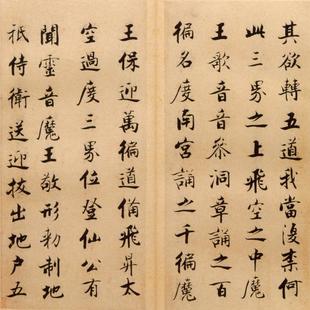 其欲轉五道我當復柰何
此三界之上飛空之中魔
王歌音音叅洞章誦之百
徧名度南宮誦之千徧魔
王保迎萬徧道備飛昇太
空過度三界位登仙公有
聞靈音魔王敬形勑制地
祇侍衛送迎拔出地戶五